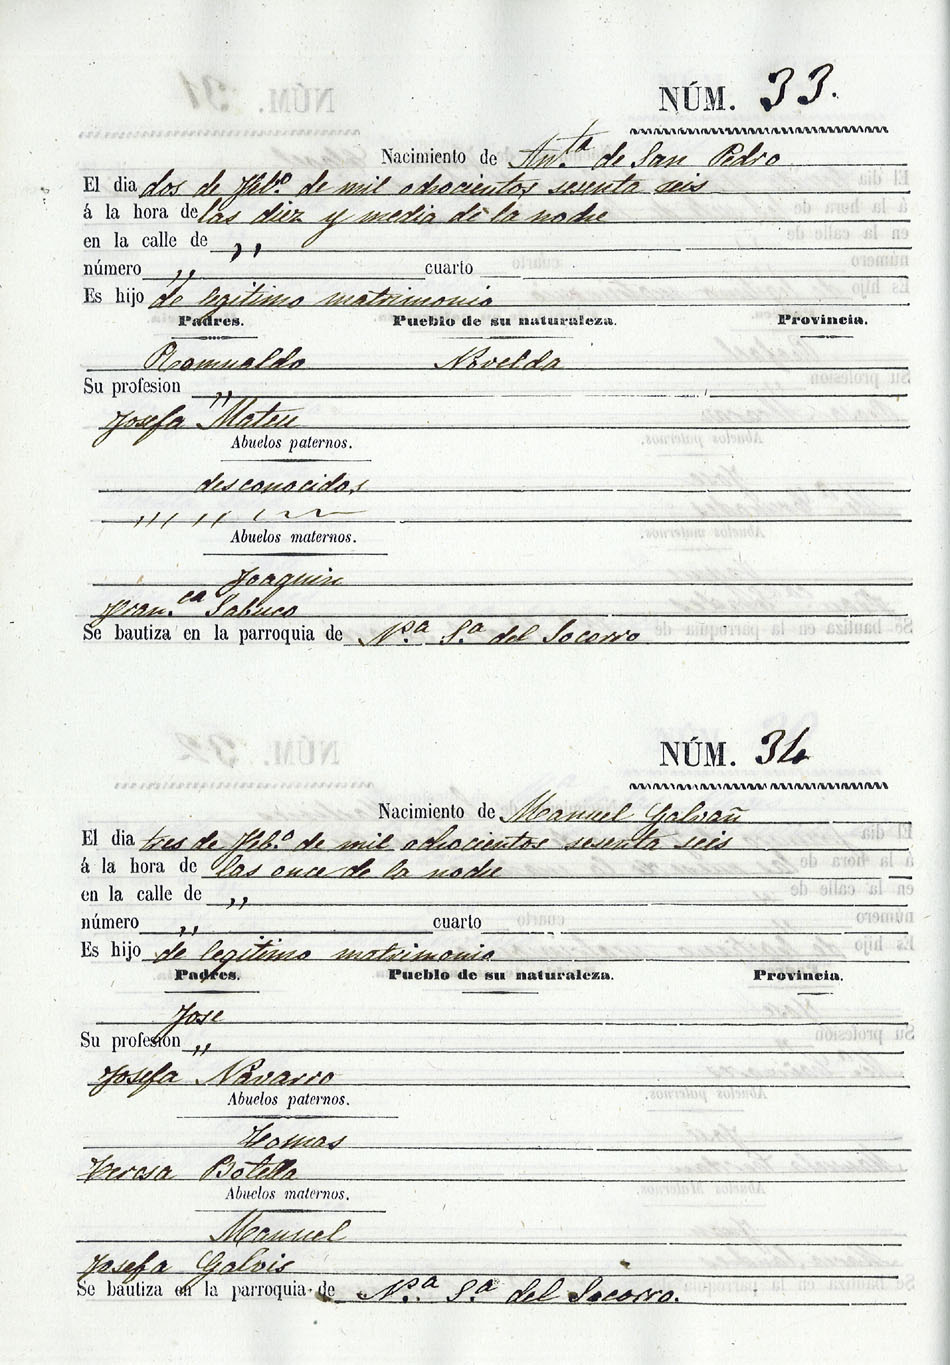 NÚM. 33.
Nacimiento de Ant.ta de San Pedro
El dia dos de Feb.o de mil ochocientos sesenta seis
á la hora de las diez y media de la noche
en la calle de ,,
número ,, cuarto
Es hijo de legitimo matrimonio
Padres. Pueblo de su naturaleza. Provincia.
Romualdo Novelda
Su profesion ,,
Josefa Mateu
Abuelos paternos.
desconocidos
Abuelos maternos.
Joaquin
Fran.ca Sabuco
Se bautiza en la parroquia de N.a S.a del Socorro
NÚM. 34
Nacimiento de Manuel Galvañ
El dia tres de Feb.o de mil ochocientos sesenta seis
á la hora de las once de la noche
en la calle de ,,
número ,, cuarto
Es hijo de legitimo matrimonio
Padres. Pueblo de su naturaleza. Provincia.
Jose
Su profesion ,,
Josefa Navarro
Abuelos paternos.
Tomas
Teresa Botella
Abuelos maternos.
Manuel
Josefa Galvis
Se bautiza en la parroquia de N.a S.a del Socorro.